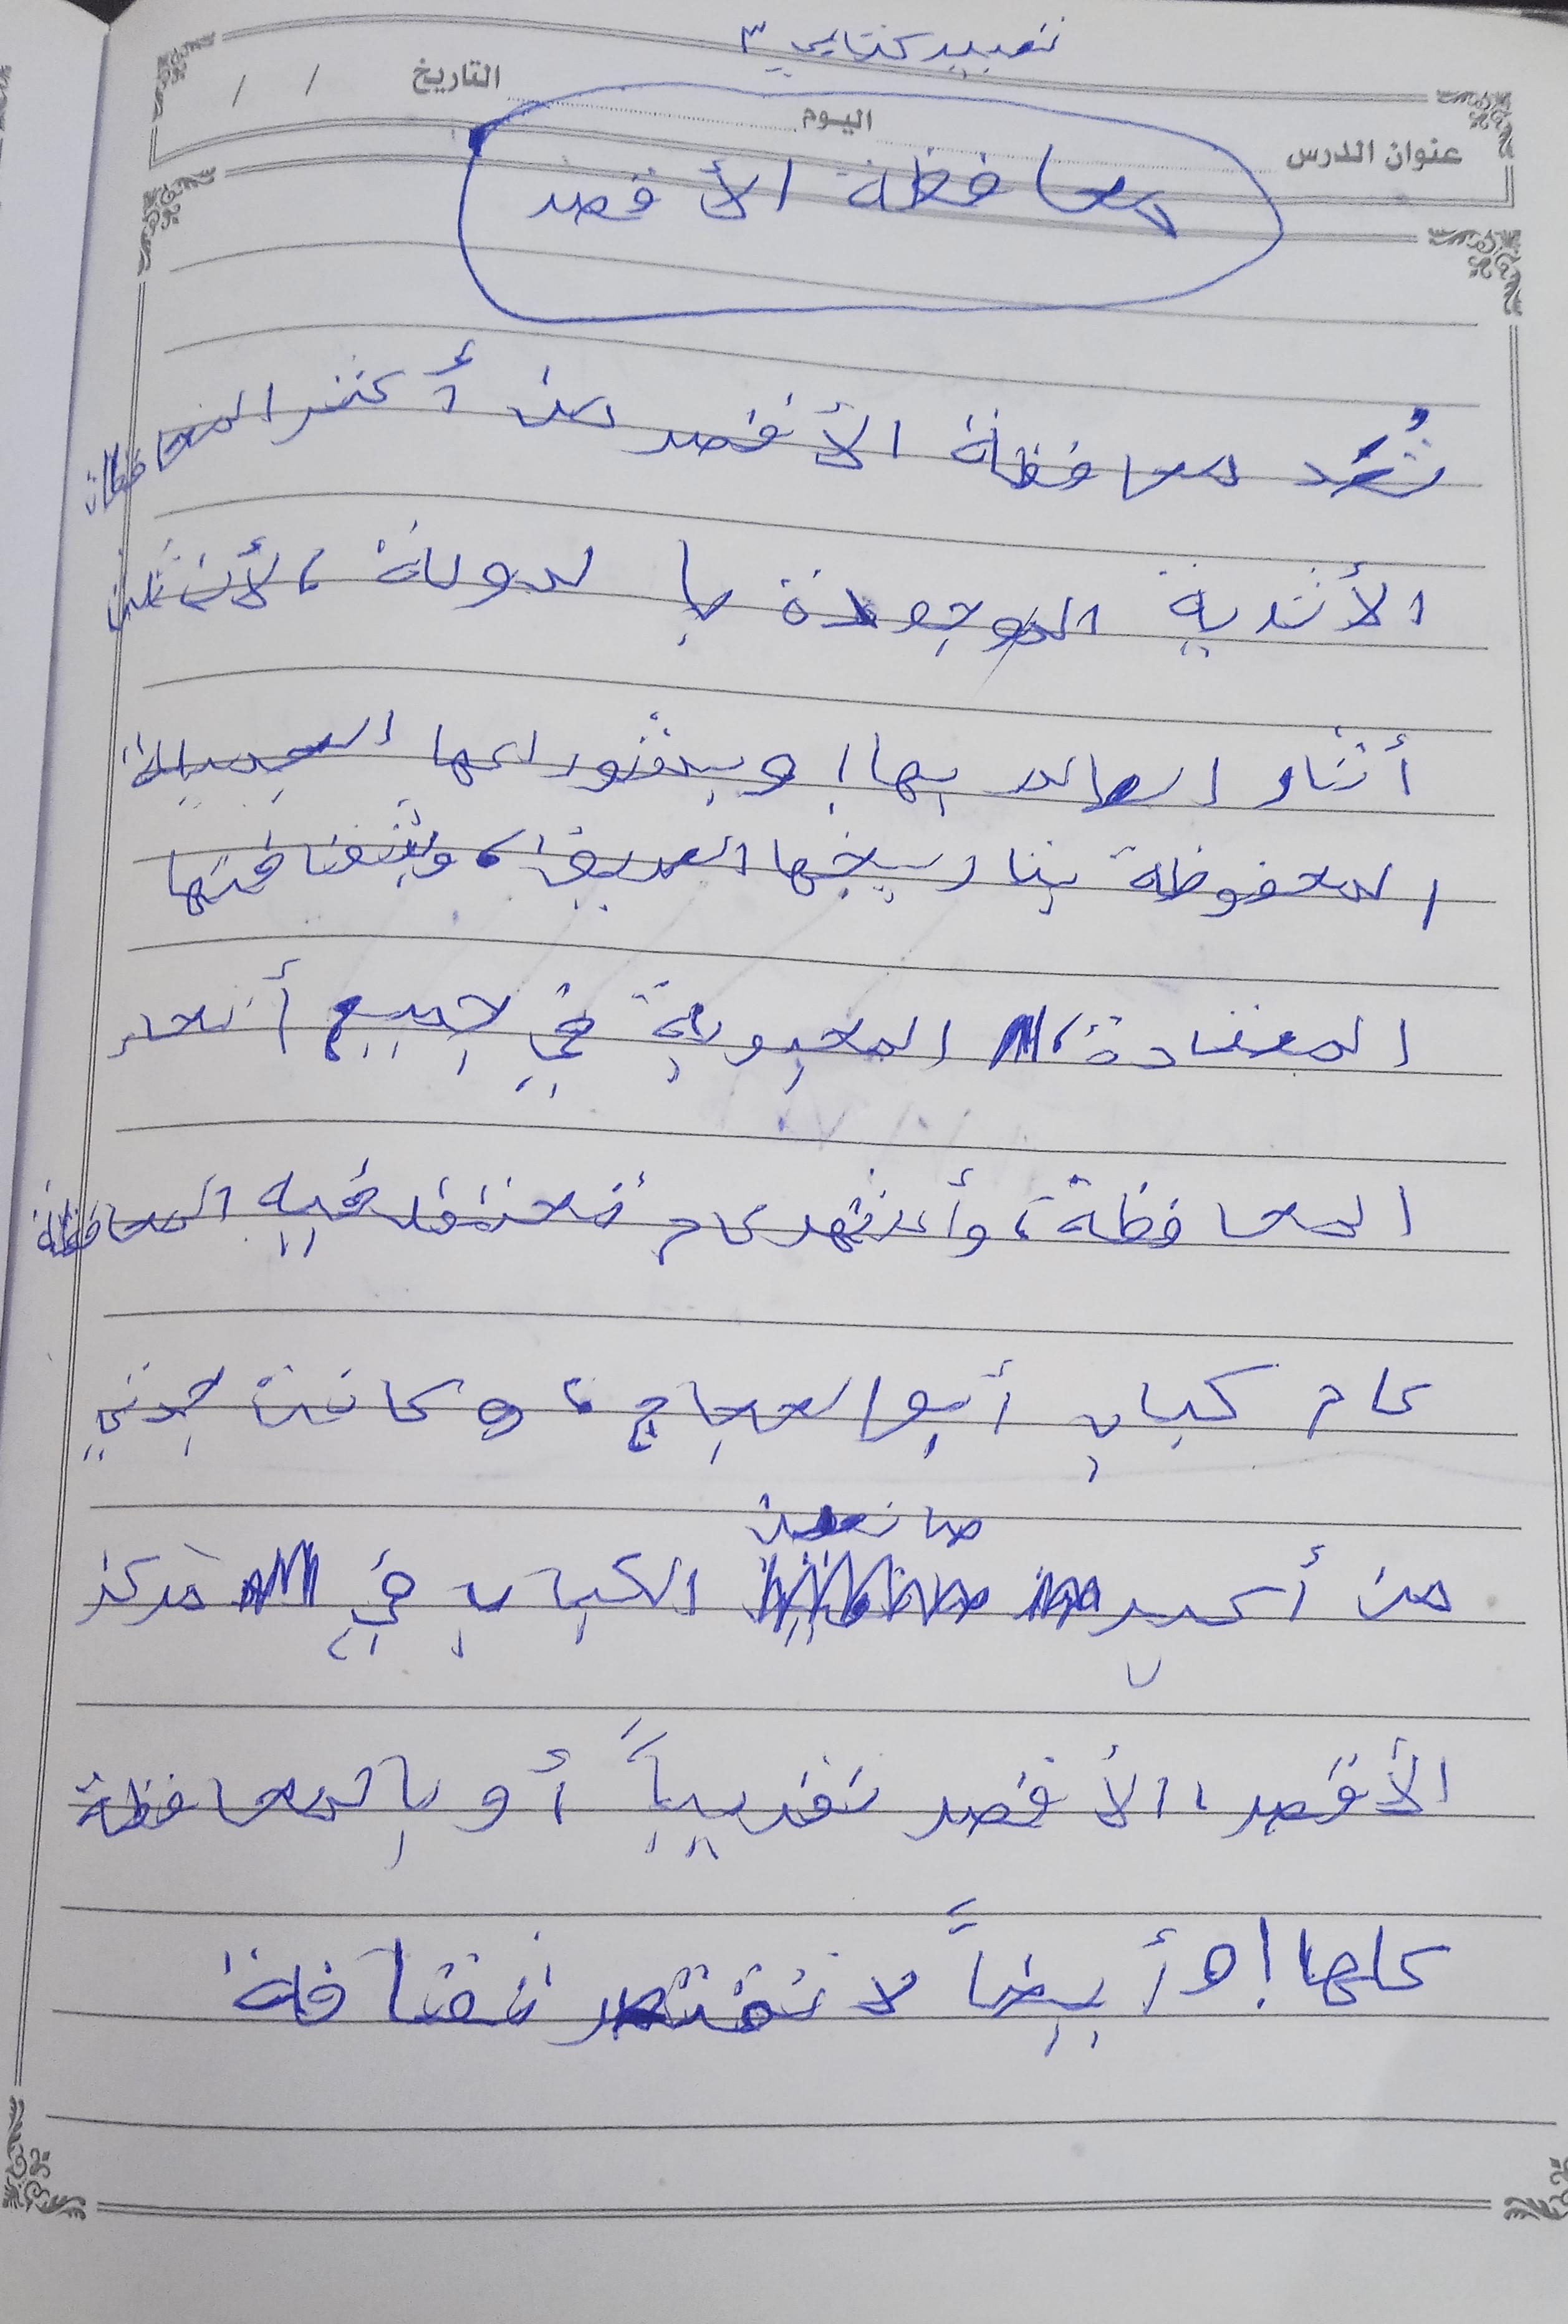 تعبير كتابي ٣
التاريخ / /
اليوم
عنوان الدرس
محافظة الأقصر
تُعَد محافظة الأقصر من أكثر المحافظات
الأثرية الموجودة بالدولة، لأن ثلث
أثار العالم بها! وبشوارعها الجميلة
المحفوظة بتاريخها العريق، وبثقافتها
المعتادة، المحبوبة في جميع أنحاء
المحافظة، وأشهر عام تحتفل فيه المحافظة
عام كباب أبو الحجاج، وكانت جدتي
من أكبر صانعين الكباب في مركز
الأقصر، الأقصر تقريباً أو بالمحافظة
كلها! وأيضاً لا تقتصر ثقافة